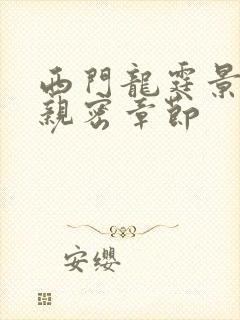 西門龍霆景
親密章節
安纓